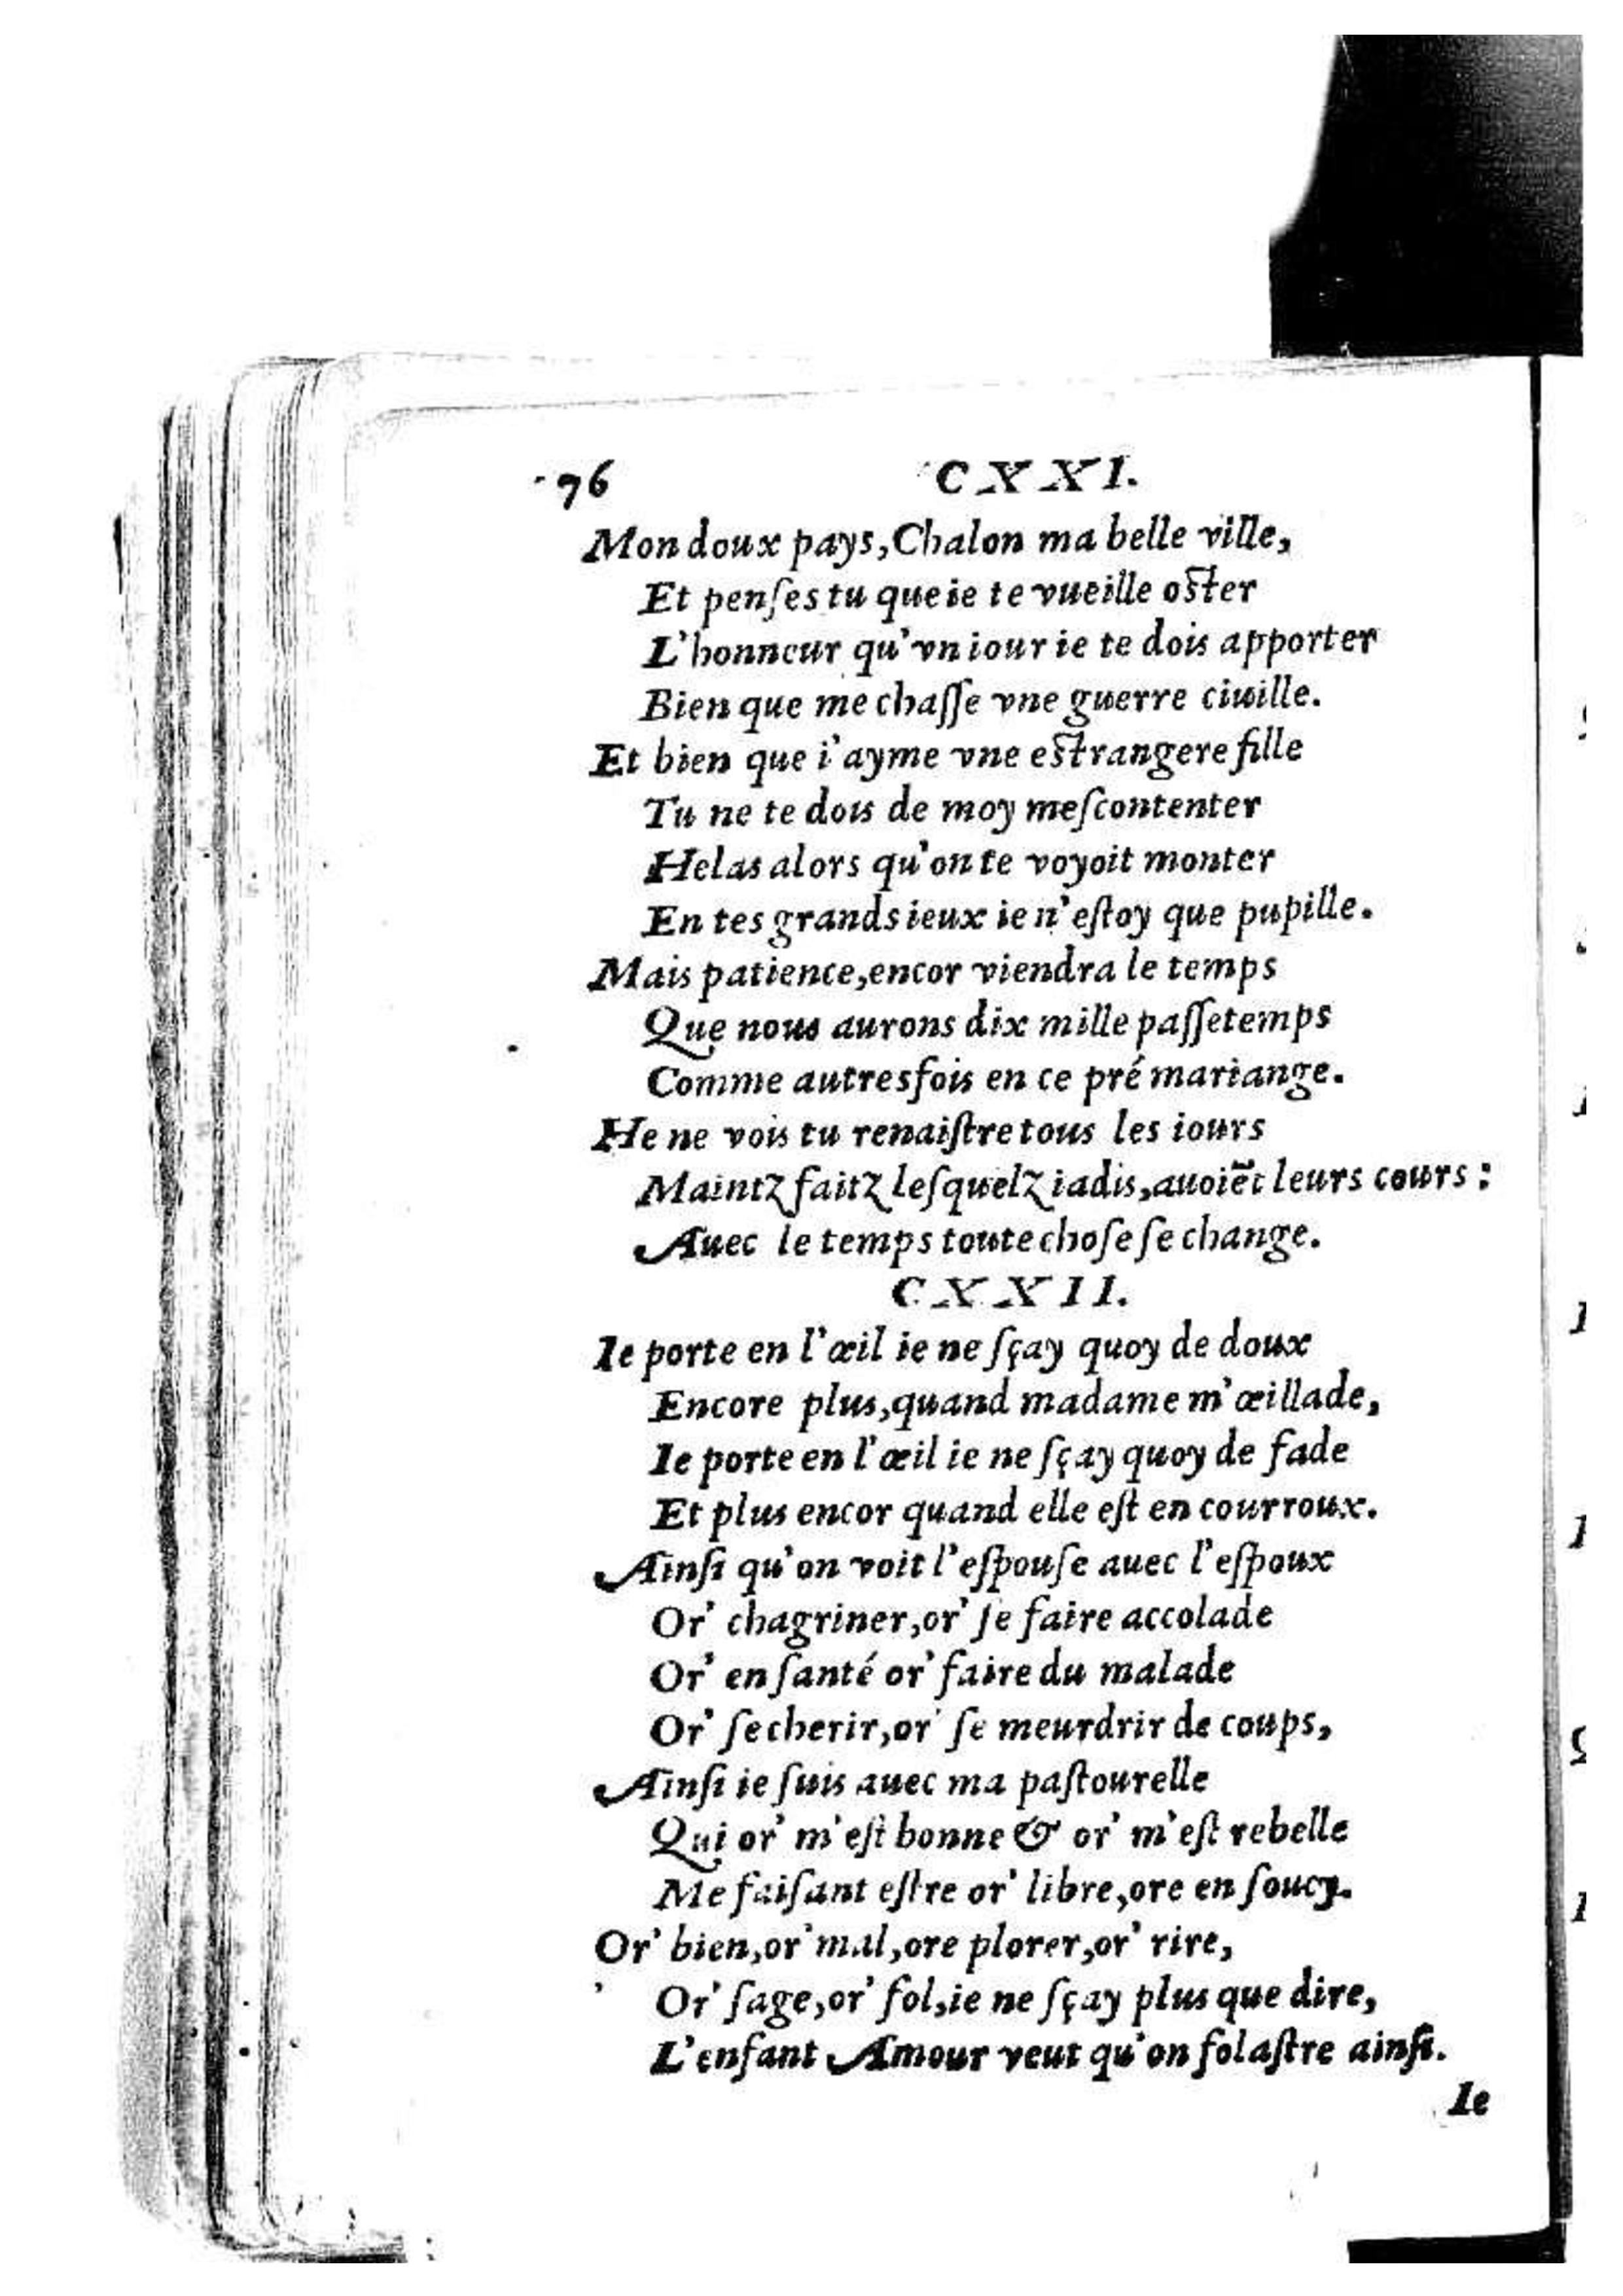 76 CXXI.
Mon doux pays, Chalon ma belle ville,
Et penſes tu que ie te vueille oſter
L'honneur qu'vn iour ie te dois apporter
Bien que me chaſſe vne guerre ciuille.
Et bien que i'ayme vne eſtrangere fille
Tu ne te dois de moy meſcontenter
Helas alors qu'on te voyoit monter
En tes grands ieux ie n'eſtoy que pupille.
Mais patience, encor viendra le temps
Que nous aurons dix mille paſſetemps
Comme autresfois en ce pré mariange.
He ne vois tu renaiſtre tous les iours
Maintz faitz leſquelz iadis, auoiẽt leurs cours :
Auec le temps toute choſe ſe change.
CXXII.
Ie porte en l'œil ie ne ſçay quoy de doux
Encore plus, quand madame m'œillade,
Ie porte en l'œil ie ne ſçay quoy de fade
Et plus encor quand elle eſt en courroux.
Ainſi qu'on voit l'eſpouſe auec l'eſpoux
Or' chagriner, or' ſe faire accolade
Or' en ſanté or' faire du malade
Or' ſe cherir, or' ſe meurdrir de coups,
Ainſi ie ſuis auec ma paſtourelle
Qui or' m'eſt bonne & or' m'eſt rebelle
Me faiſant eſtre or' libre, ore en ſoucy.
Or' bien, or' mal, ore plorer, or' rire,
Or' ſage, or' fol, ie ne ſçay plus que dire,
L'enfant Amour veut qu'on folaſtre ainſi.
Ie